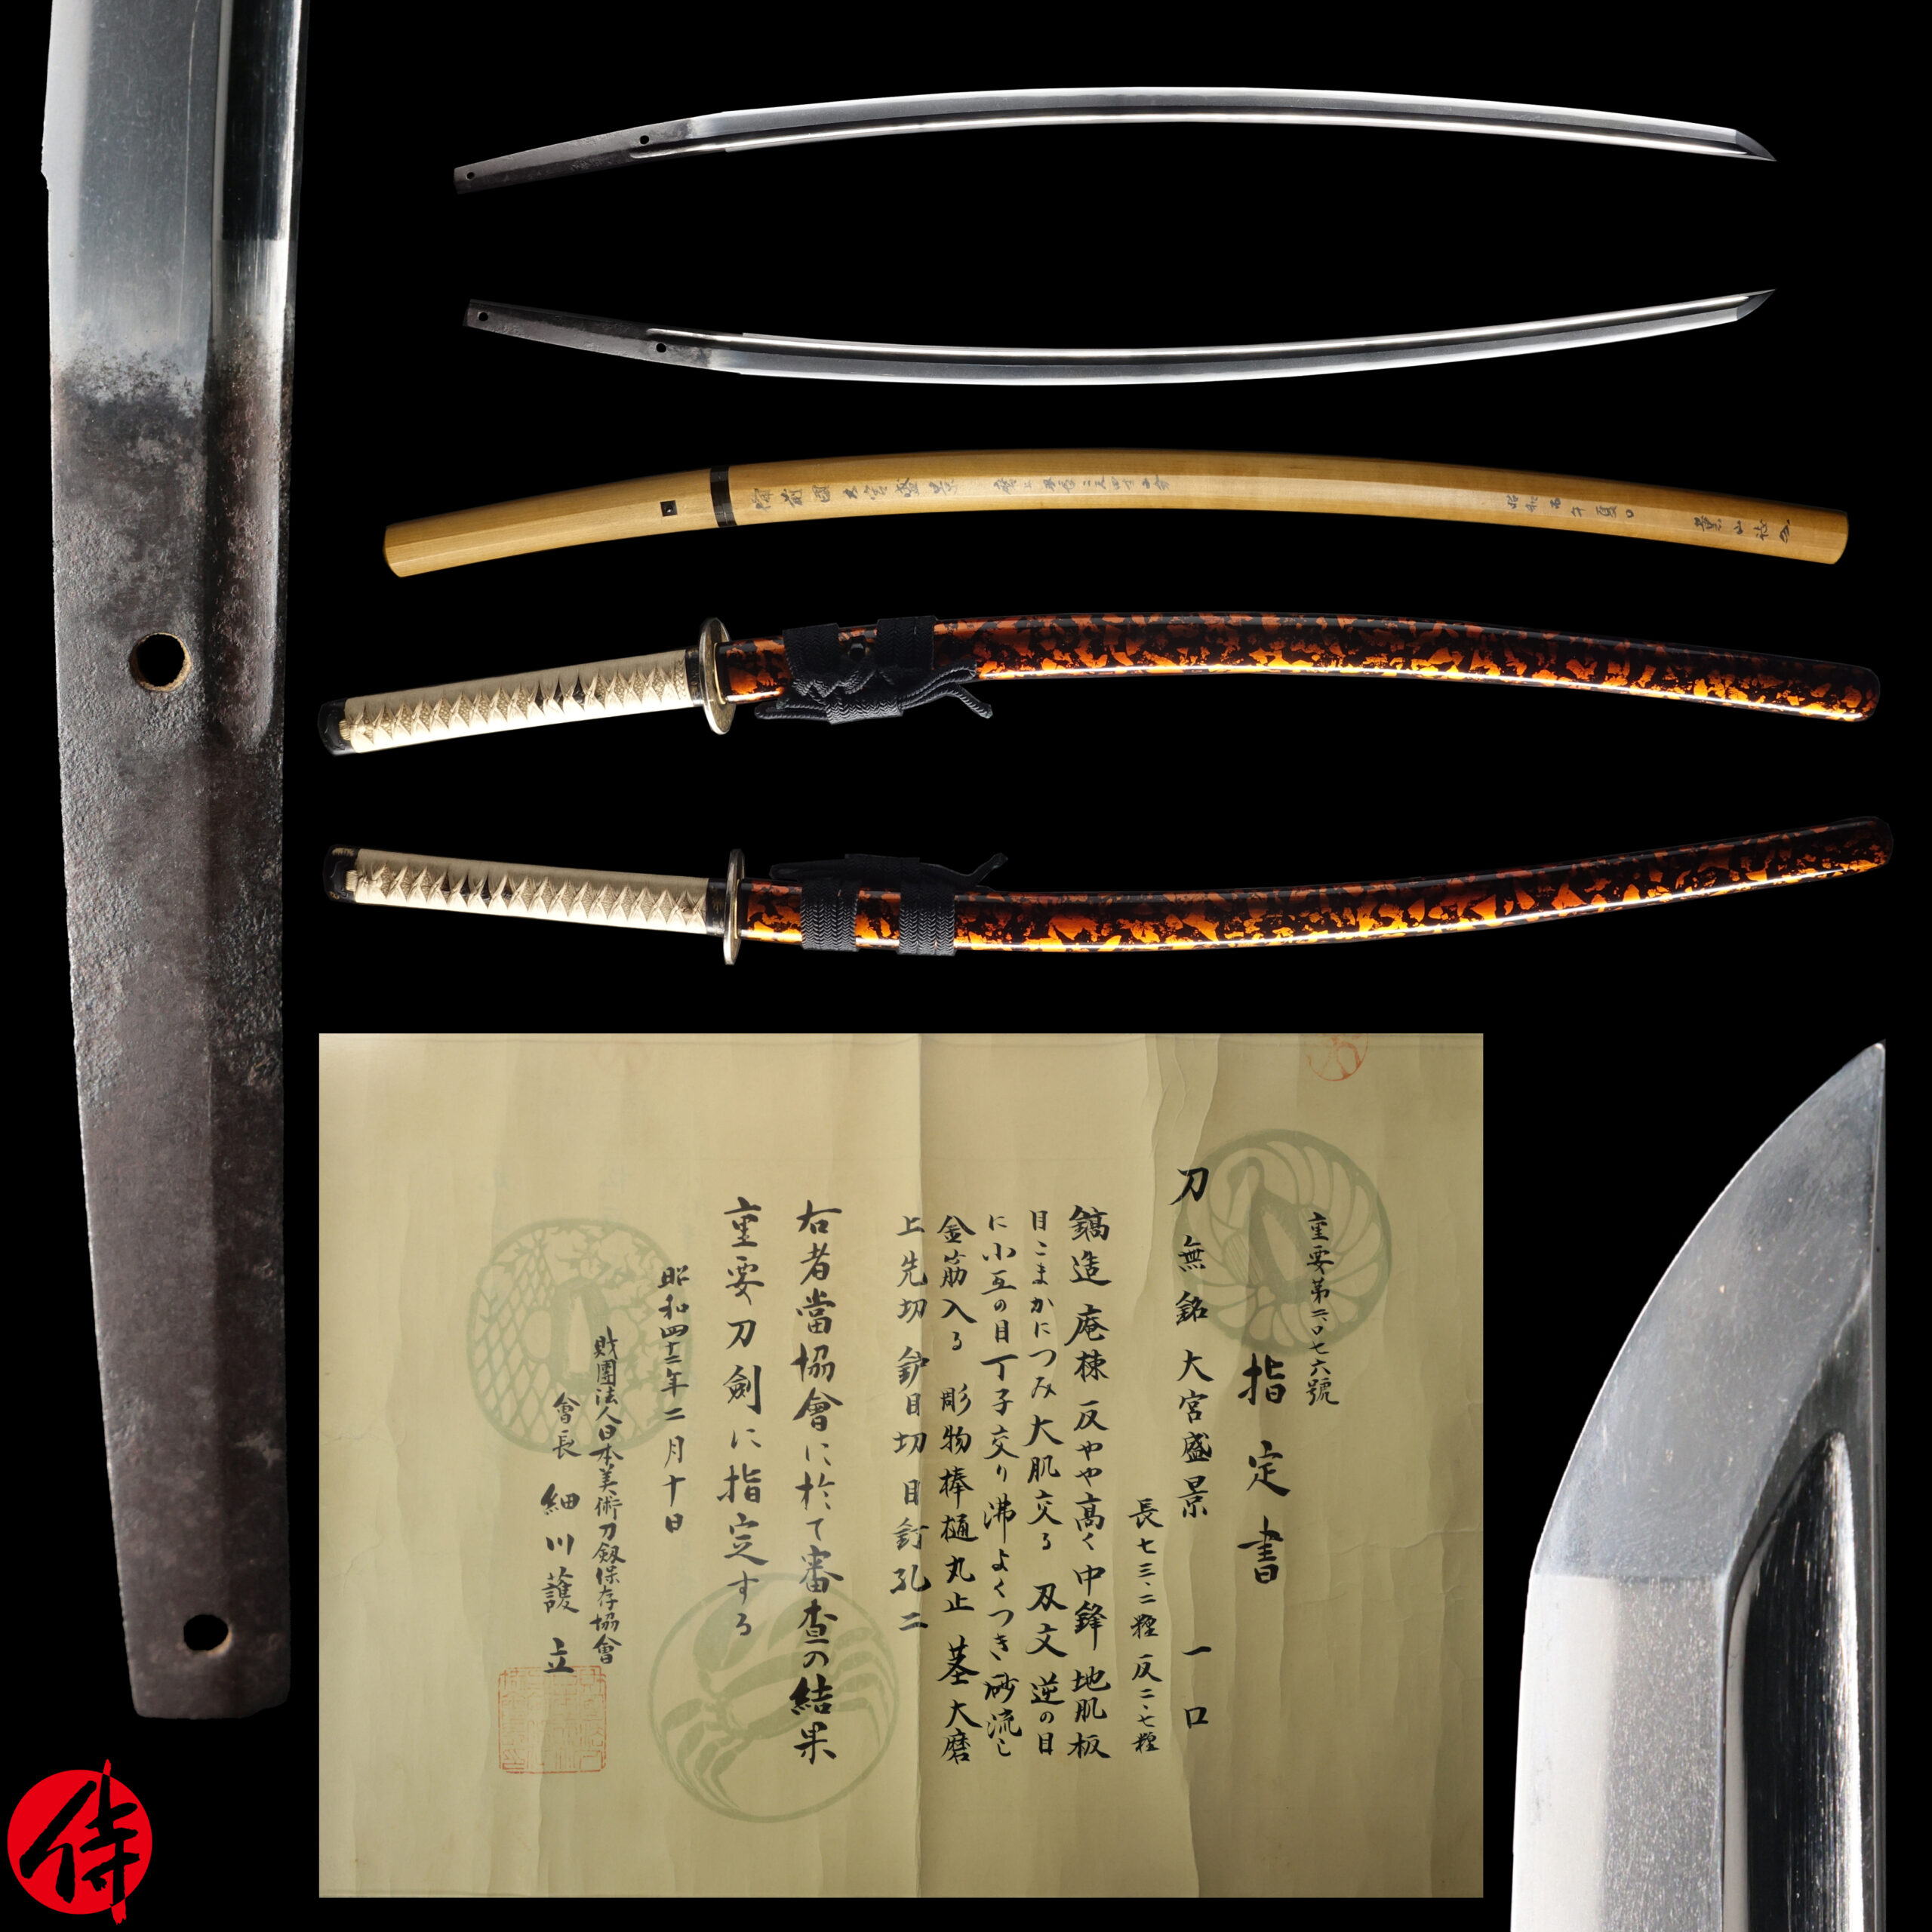 備前國大宮盛景
磨上無銘二尺四寸一分
昭和
年夏日
葉山
重要第二〇七六號
指定書
刀 無銘 大宮盛景 一口
長七三・二糎 反二・七糎
鎬造 庵棟 反やや高く 中鋒 地肌板
目こまかにつみ大肌交る 刃文 逆の目
に小互の目丁子交り沸よくつき砂流し
金筋入る 彫物棒樋丸止 茎大磨
上先切 鈩目切 目釘孔二
右者當協會に於て審査の結果
重要刀劍に指定する
昭和四十二年二月十日
財團法人日本美術刀劔保存協會
會長 細川護立
侍